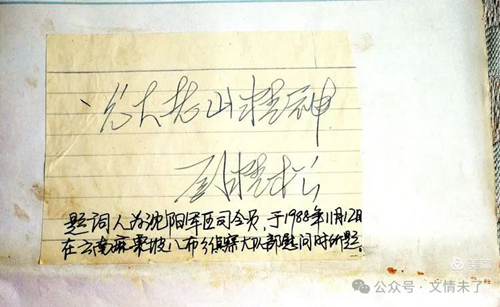 光大老山精神
刘精松
题词人为沈阳军区司令员,于1988年11月12日
在云南麻栗坡八布乡侦察大队部慰问时所题。
公众号·文情未了